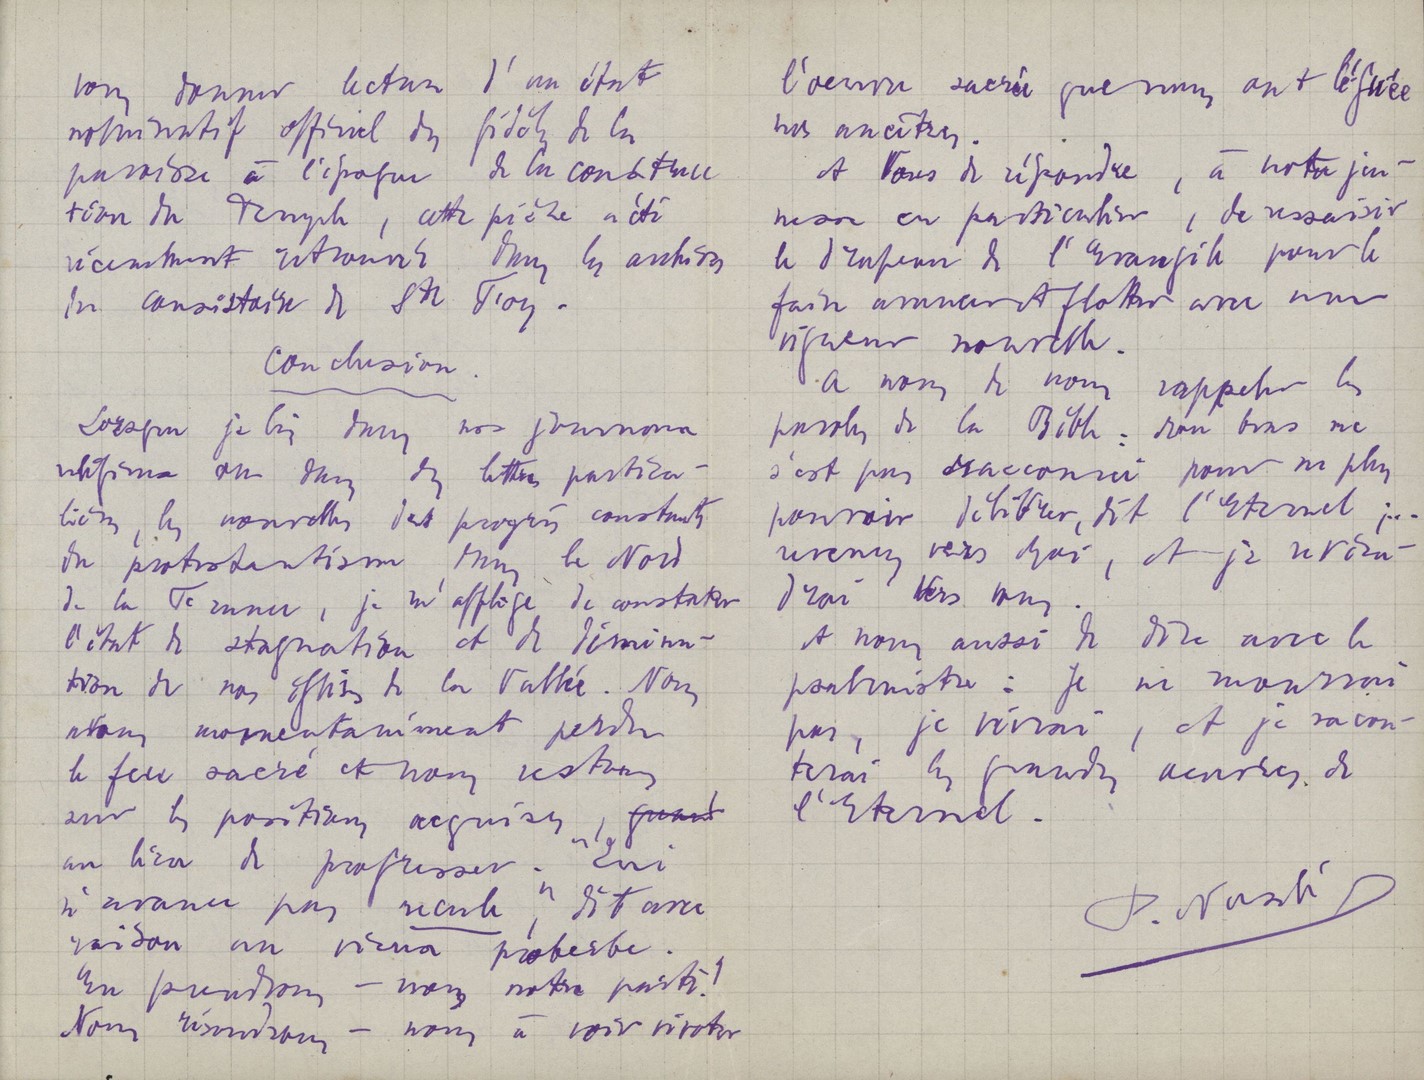 vous donner lecture d'un état
nominatif officiel des fidèles de la
paroisse à l'époque de la construc
tion du Temple, cette pièce a été
récemment retrouvée dans les archives
du consistoire de Ste Foy.
Conclusion.
Lorsque je lis dans nos journaux
religieux ou dans des lettres particu-
lières, les nouvelles des progrès constants
du protestantisme dans le Nord
de la France, je m'afflige de constater
l'état de stagnation et de diminu-
tion de nos églises de la Vallée. Nous
avons momentanément perdu
le feu sacré et nous restons
sur les positions acquises,
au lieu de progresser. "Qui
n'avance pas recule", dit avec
raison un vieux proverbe.
En prendrons-nous notre parti!
Nous résoudrons-nous à voir vivoter
l'oeuvre sacrée que nous ont léguée
nos ancêtres.
A vous de répondre, à notre jeu-
nesse en particulier, de ressaisir
le drapeau de l'Evangile pour le
faire avancer et flotter avec une
vigueur nouvelle.
A nous de nous rappeler les
paroles de la Bible: mon bras ne
s'est pas raccourci pour ne plus
pouvoir délivrer, dit l'Eternel
revenez vers moi, et je reviens-
drai vers vous.
A nous aussi de dire avec le
psalmiste: Je ne mourrai
pas, je vivrai, et je racon-
terai les grandes oeuvres de
l'Eternel.